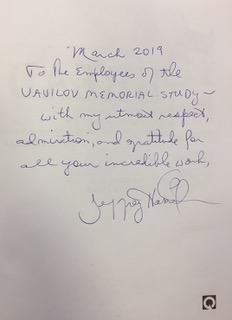 March 2019
To the Employees of the
VAVILOV MEMORIAL STUDY ~
with my utmost respect,
admiration, and gratitude for
all your incredible work,
Jeffrey